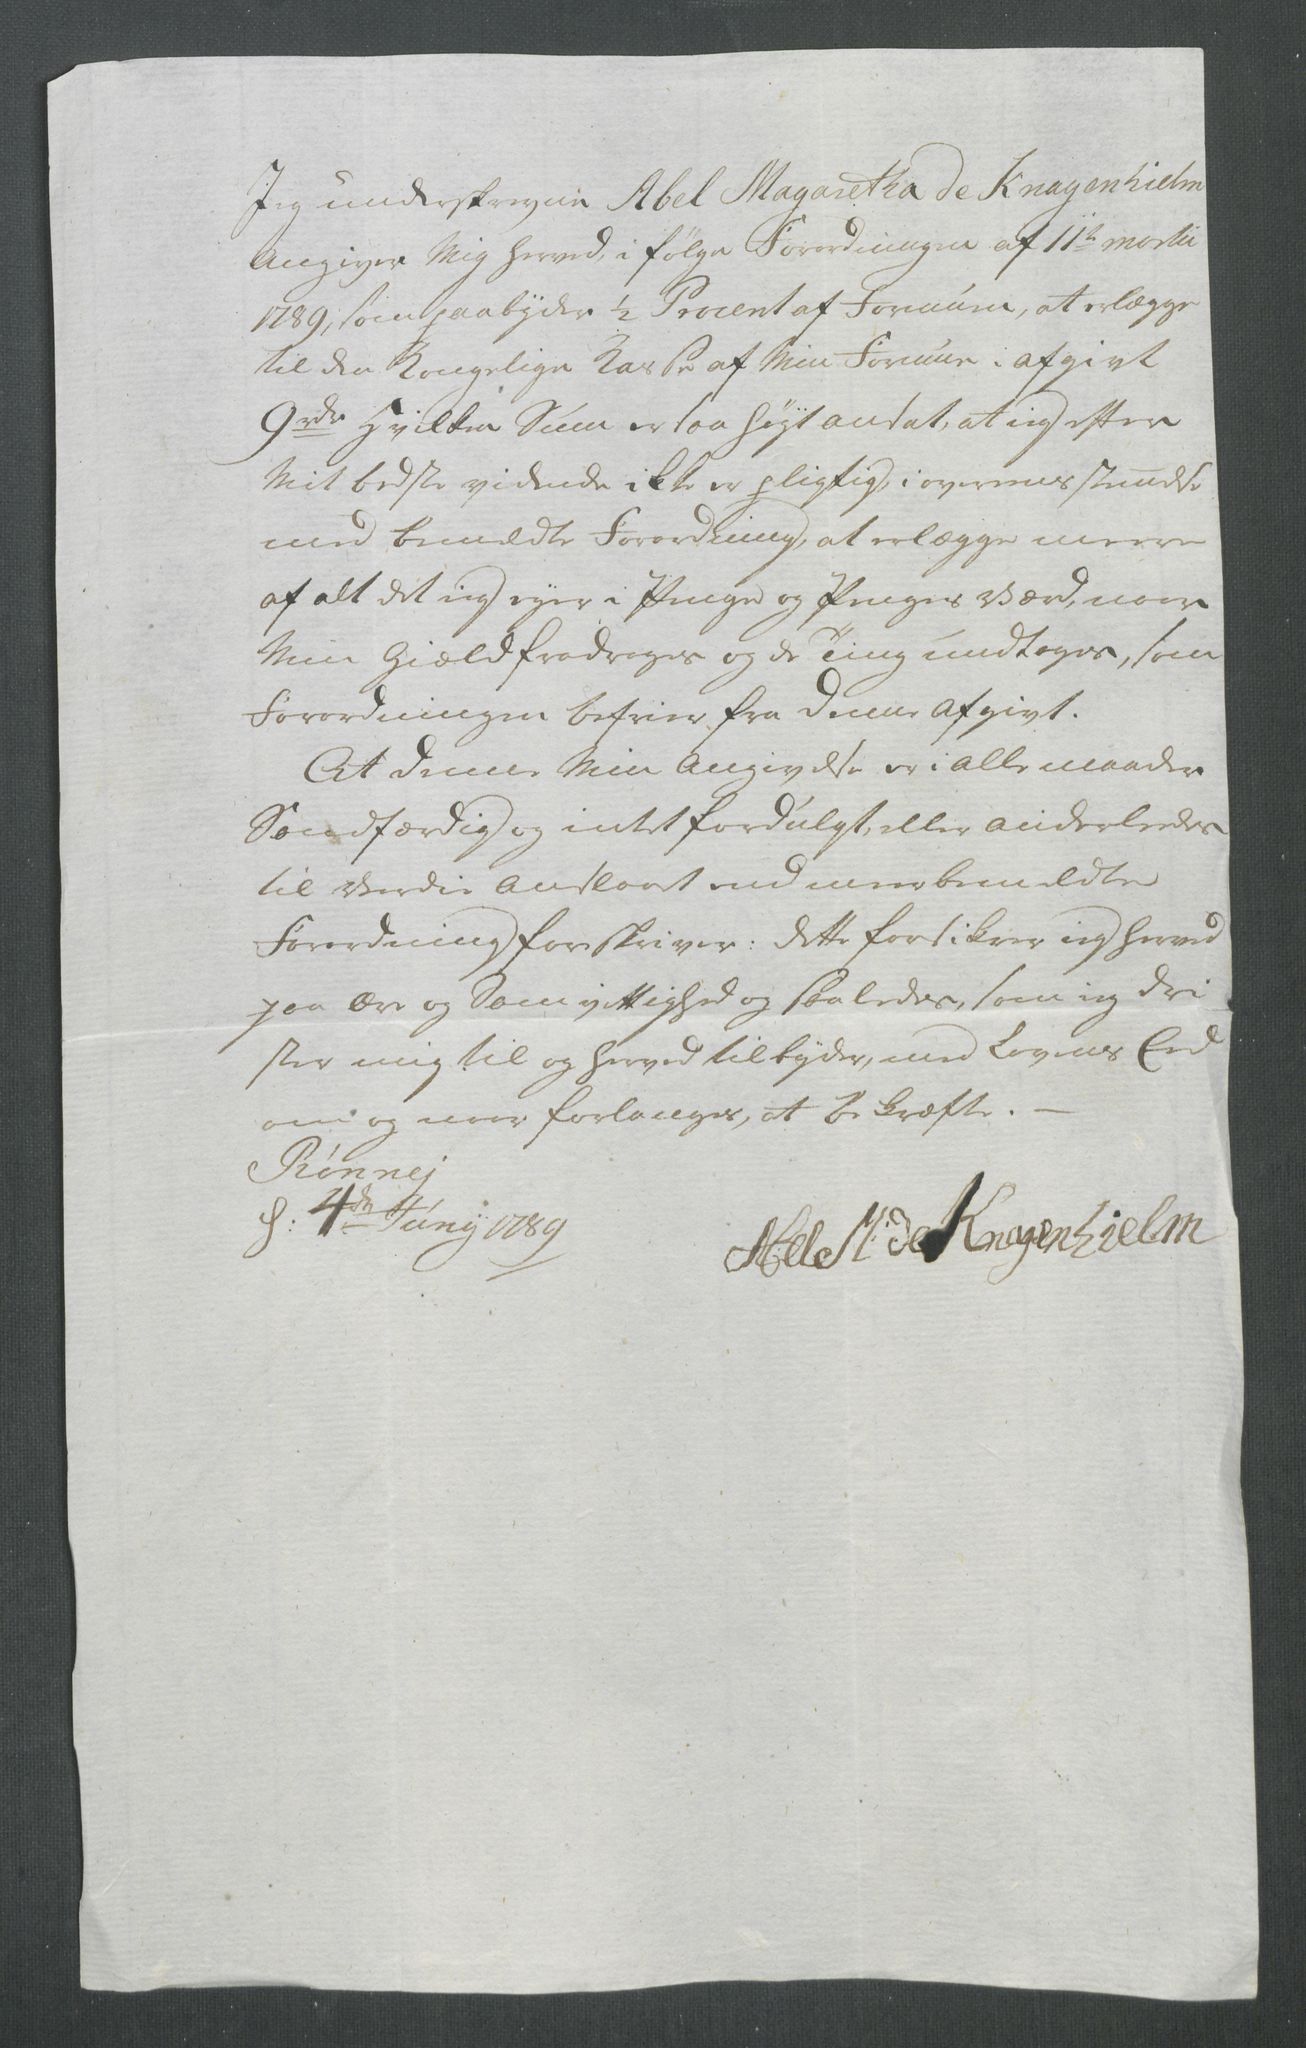 Jeg underskrevne Abel Magaretha de Knagenhielm
angiver Mig herved, i følge Forordningen af 11te martii
1789, som paabyder ½ Procent af Formuen, at erlægge
til den Kongelige Kasse af Min Formue i afgivt
9 rdr Hvilken Sum er saa høyt ansat, at ieg efter
Mit bedste vidende ikke er pligtig, i overeensstemmelse
med bemeldte Forordning, at erlægge meere
af alt det ieg eyer i Penge og Penges Værd, naar
Min Giæld fradrages og de Ting undtages, som
Forordningen befrier fra denne Afgivt.
At denne Min Angivelse er i alle maader
Sandfærdig og intet fordulgt, eller anderledes
til Værdie anslaaet end meerbemeldte
Forordning foreskriver: dette forsikrer ieg herved
paa Ære og Samvittighed og saaledes, som ieg dri
ster mig til og herved tilbyder, med Lovens Eed
om og naar forlanges, at bekræfte. —
Rønnej
d: 4de Juny 1789
Abel M: de Knagenhielm